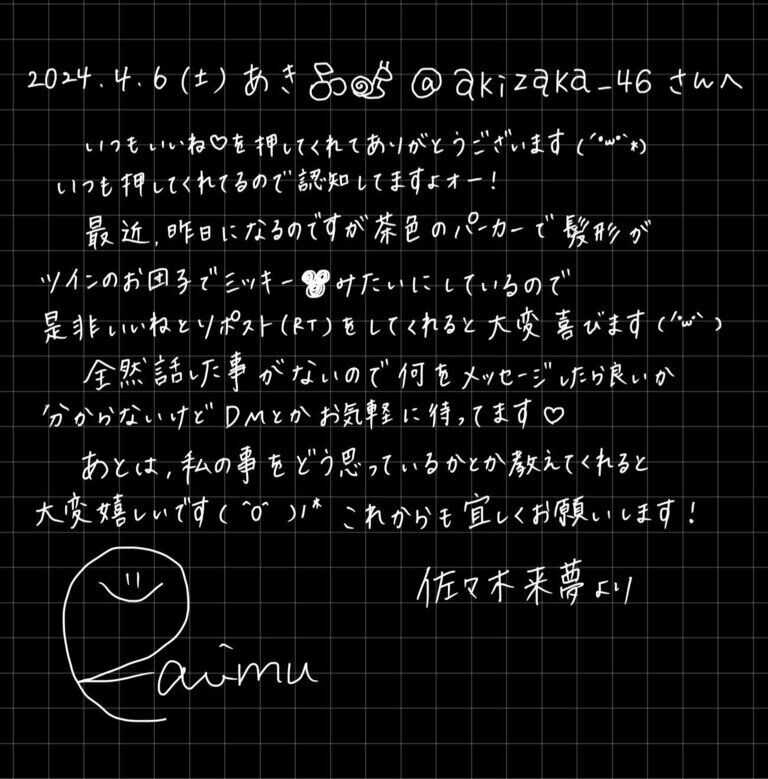 2024.4.6(土) あき @akizaka_46 さんへ
いつもいいね♡を押してくれてありがとうございます(´°ω°`*)
いつも押してくれてるので認知してますよォー！
最近，昨日になるのですが茶色のパーカーで髪形が
ツインのお団子でミッキーみたいにしているので
是非いいねとリポスト(RT)をしてくれると大変喜びます(´°ω°`)
全然話した事がないので何をメッセージしたら良いか
分からないけどDMとかお気軽に待ってます♡
あとは，私の事をどう思っているかとか教えてくれると
大変嬉しいです(＾o＾)ﾉ* これからも宜しくお願いします！
佐々木来夢より
Raimu